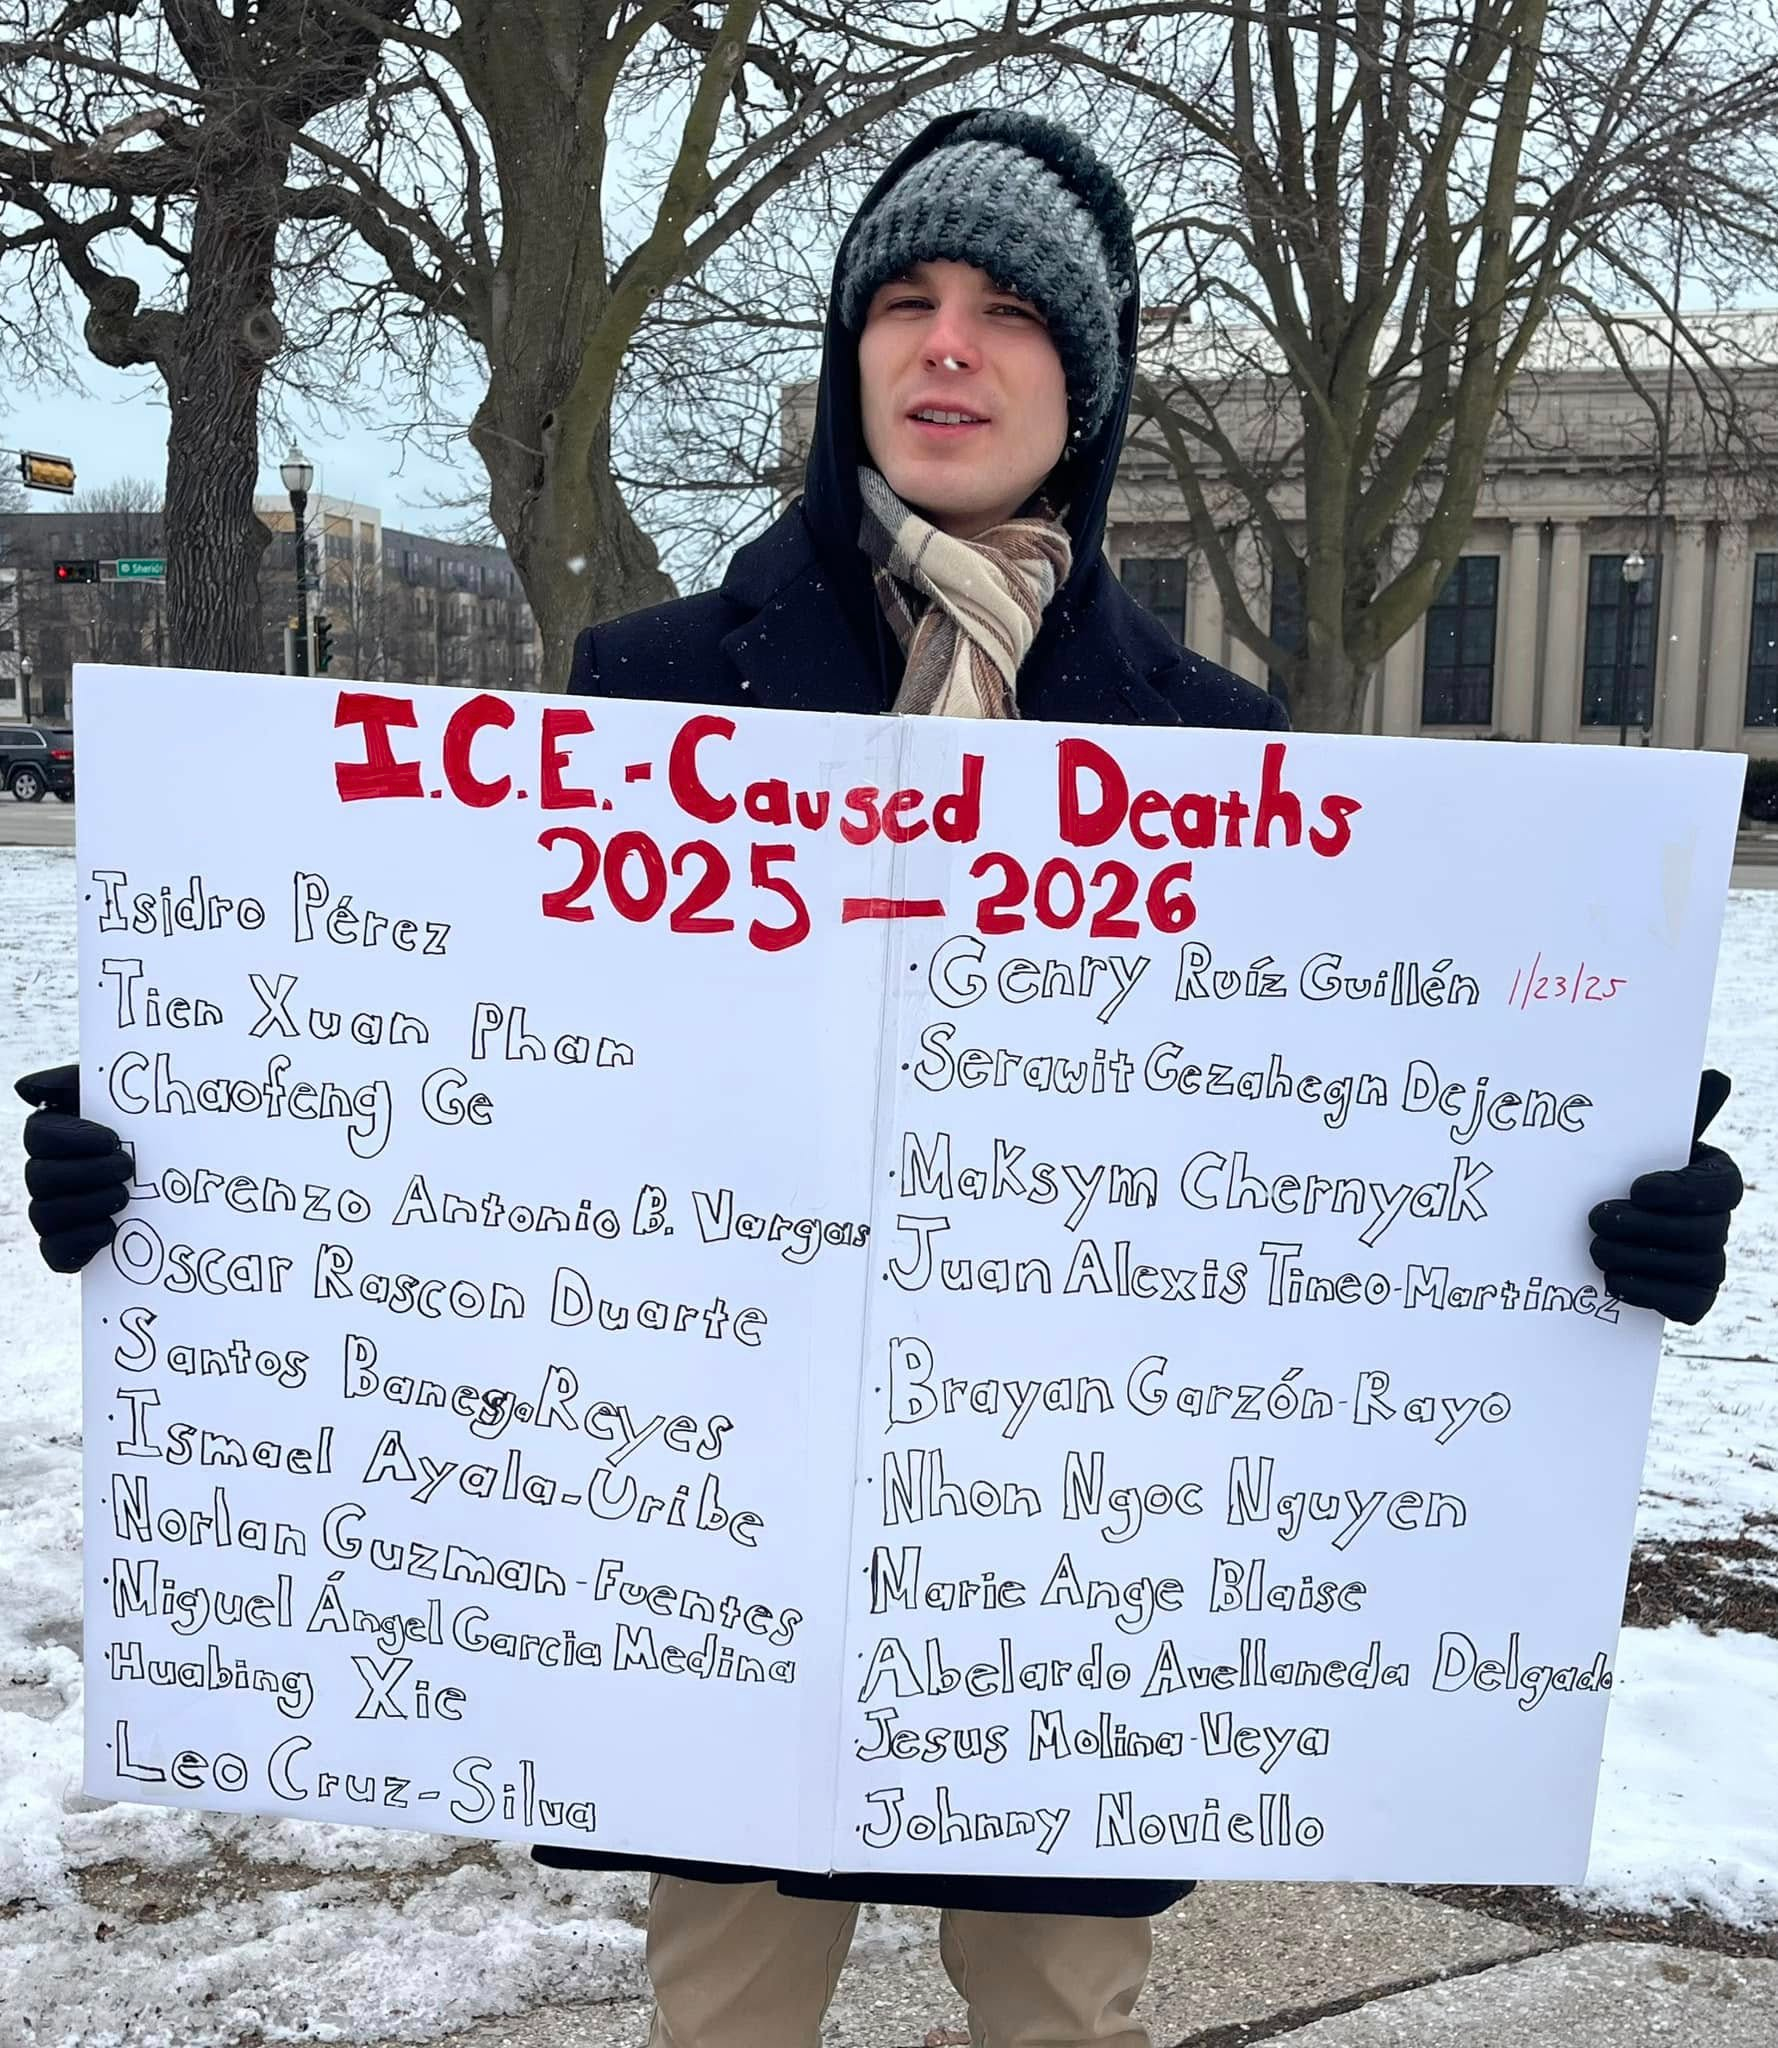 Sherid
I.C.E.-Caused Deaths
2025-2026
·Isidro Pérez
·Tien Xuan Phan
·Chaofeng Ge
Lorenzo Antonio B. Vargas
Oscar Rascon Duarte
·Santos Banegas Reyes
·Ismael Ayala-Uribe
·Norlan Guzman-Fuentes
·Miguel Ángel Garcia Medina
·Huabing Xie
·Leo Cruz-Silva
·Genry Ruíz Guillén 1/23/25
·Serawit Gezahegn Dejene
·Maksym Chernyak
·Juan Alexis Tineo-Martinez
·Brayan Garzón-Rayo
·Nhon Ngoc Nguyen
·Marie Ange Blaise
·Abelardo Avellaneda Delgado
·Jesus Molina-Veya
·Johnny Noviello